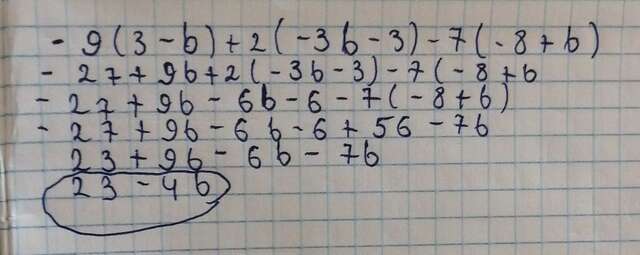 - 9(3-b)+2(-3b-3)-7(-8+b)
- 27+9b+2(-3b-3)-7(-8+b
- 27+9b-6b-6-7(-8+b)
- 27+9b-6b-6+56-7b
23+9b-6b-7b
23-4b